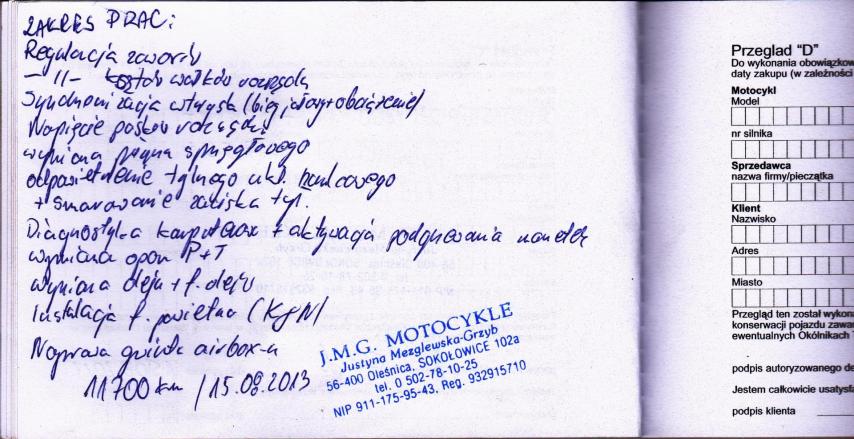 ZAKRES PRAC:
Regulacja zaworów
- 11 - wałków rozrządu
Synchronizacja wtrysku (bieg jałowy + obciążenie)
Napięcie pasków rozrządu
wymiana płynu sprzęgłowego
odpowietrzenie tylnego ukł. hamulcowego
+ smarowanie zacisku tył.
Diagnostyka komputerowa + aktywacja podgrzewania manetek
wymiana opon P+T
wymiana oleju + f. oleju
Instalacja f. powietrza (K&N)
Naprawa gwintu airbox-u
11700 km / 15.08.2013
J.M.G. MOTOCYKLE
Justyna Mezglewska-Grzyb
56-400 Oleśnica, SOKOŁOWICE 102a
tel. 0 502-78-10-25
NIP 911-175-95-43, Reg. 932915710
Przegląd "D"
Do wykonania obowiązkow
daty zakupu (w zależności
Motocykl
Model
nr silnika
Sprzedawca
nazwa firmy/pieczątka
Klient
Nazwisko
Adres
Miasto
Przegląd ten został wykona
konserwacji pojazdu zawa
ewentualnych Okólnikach
podpis autoryzowanego de
Jestem całkowicie usatysfa
podpis klienta